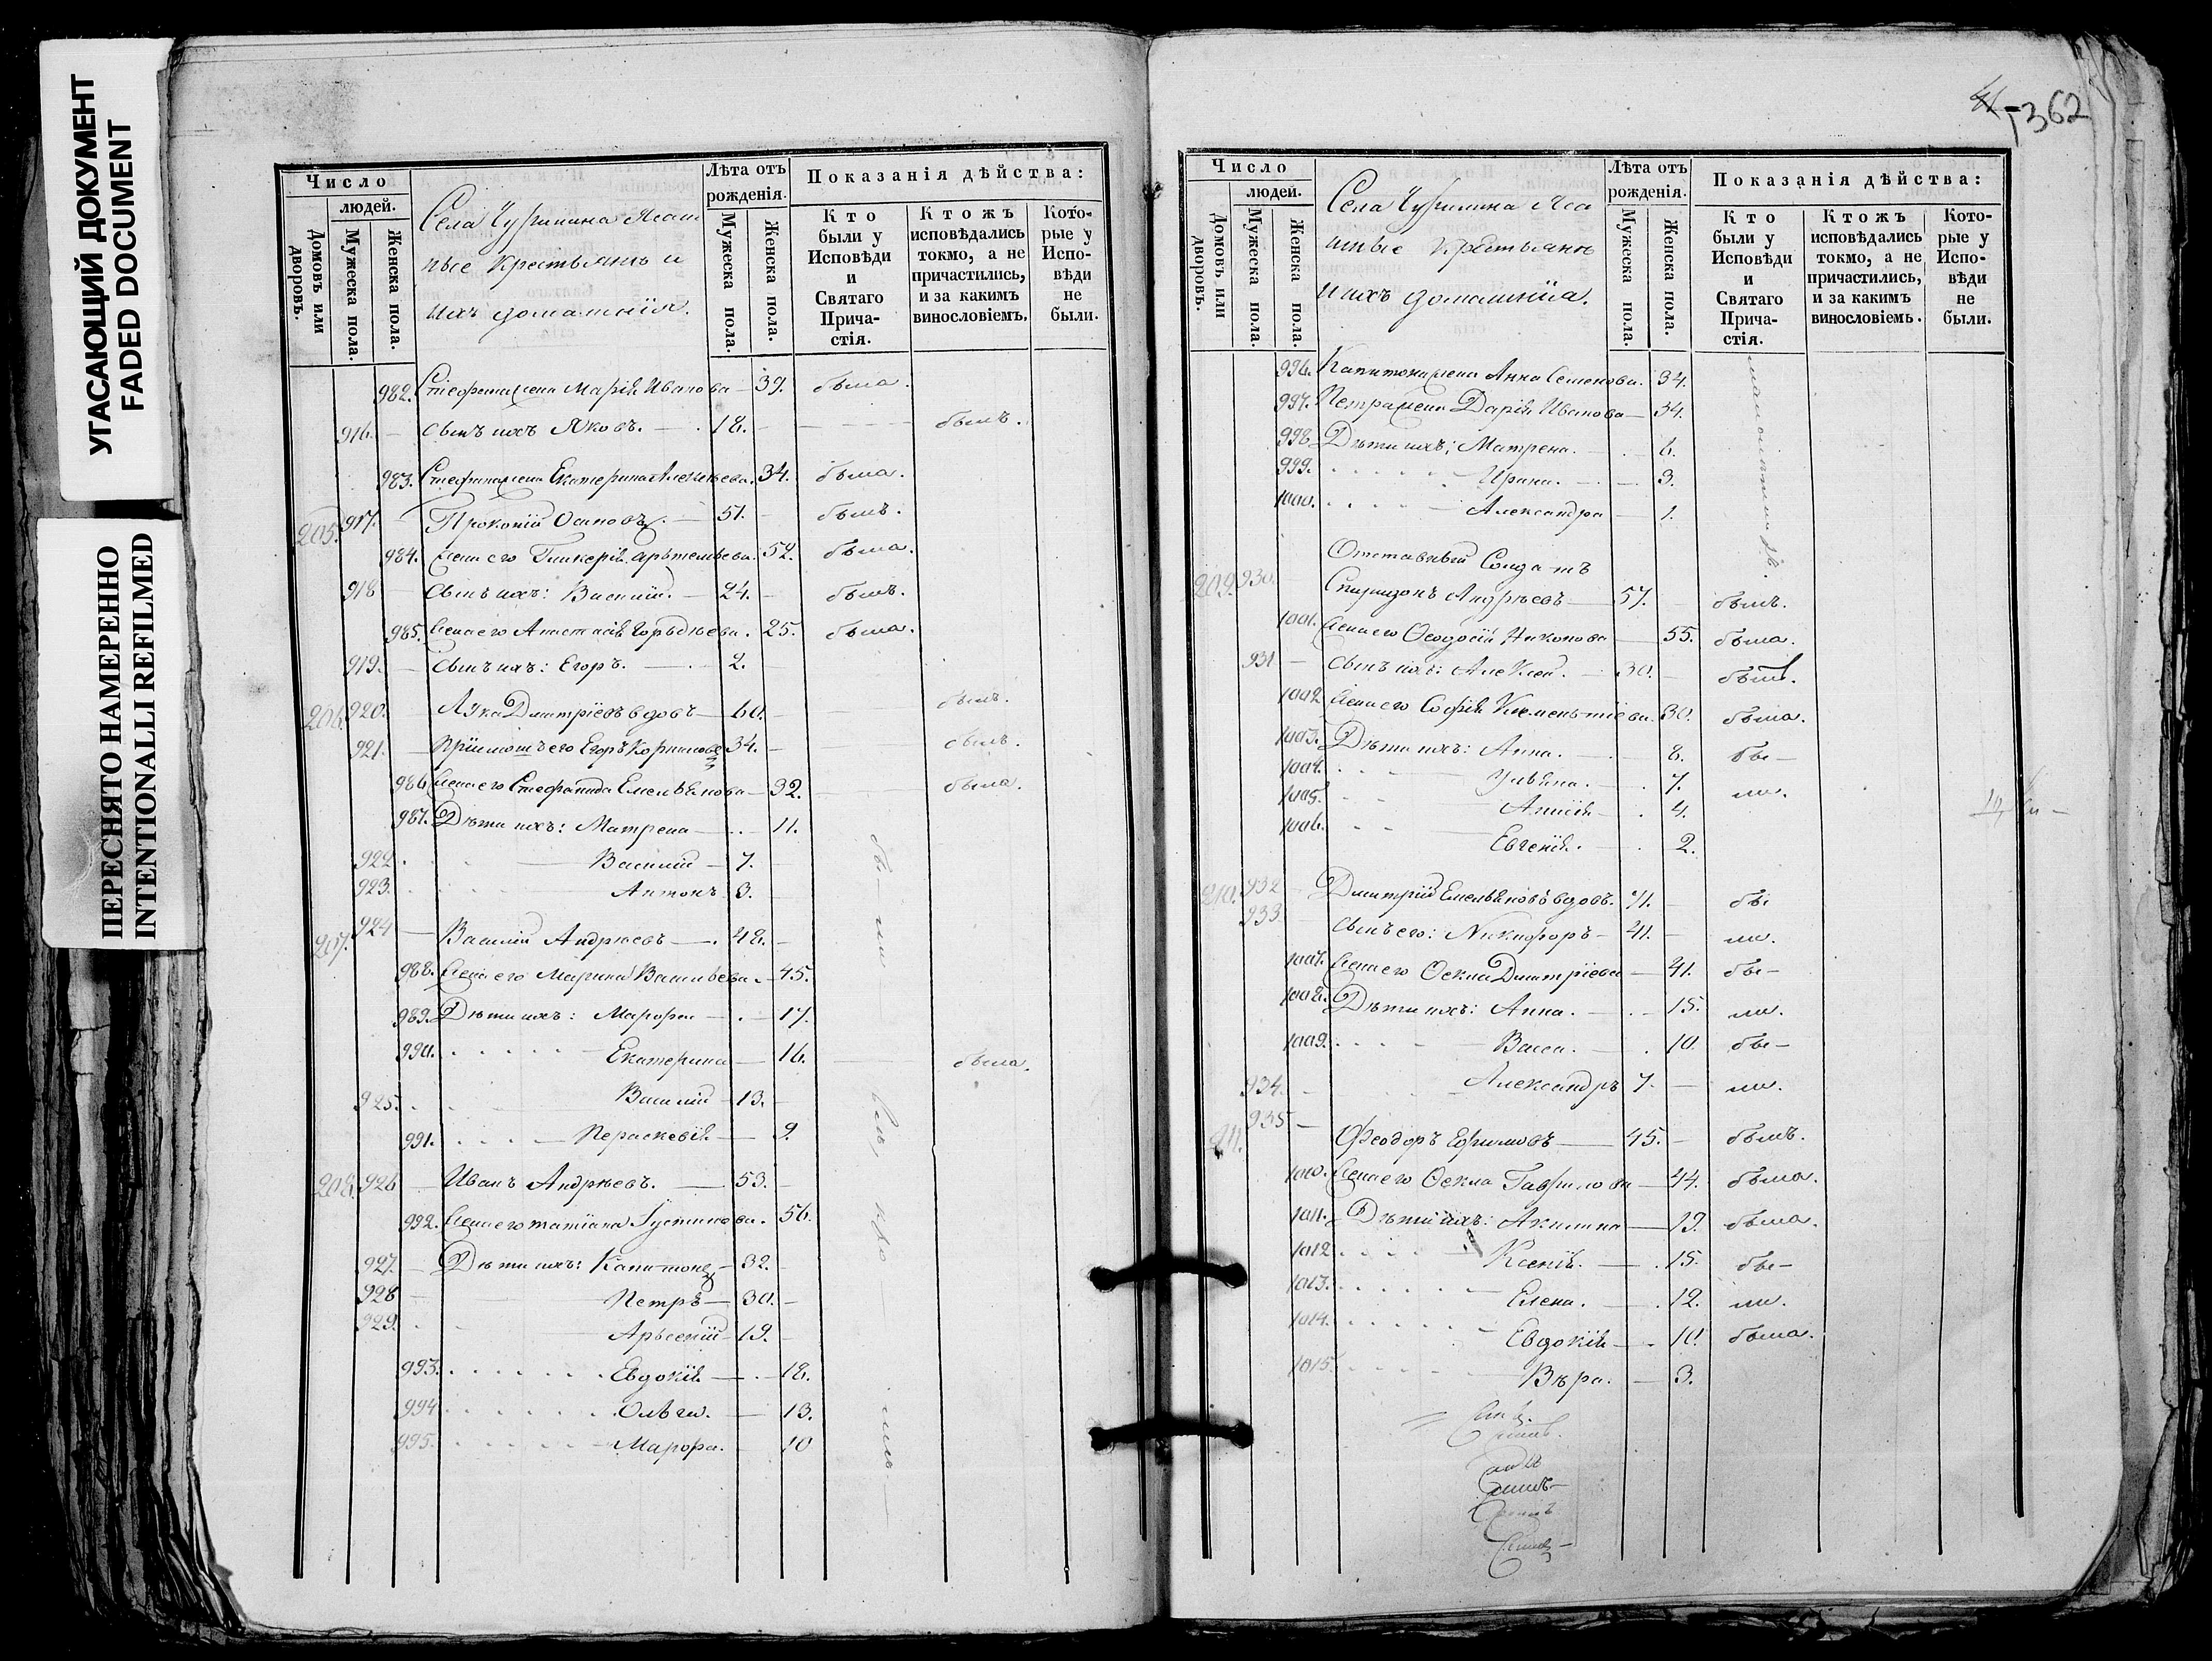 УГАСАЮЩИЙ ДОКУМЕНТ
FADED DOCUMENT
ПЕРЕСНЯТО НАМЕРЕННО
INTENTIONALLI REFILMED
Число
людей.
Домовъ или дворовъ.
Мужеска пола.
Женска пола.
Села Чурилина Ясаш
ные Крестьянъ и
ихъ домашнія.
Лѣта отъ рожденія.
Мужеска пола.
Женска пола.
Показанія дѣйства:
Кто были у Исповѣди и Святаго Прича-стія.
Ктожъ исповѣдались токмо, а не причастились, и за какимъ винословіемъ.
Кото-рые у Испо-вѣди не были.
982. Стефана жена Марія Иванова — 39. была.
916. — сынъ ихъ Яковъ. — 18. — былъ.
983. Стефана жена Екатерина Алексѣева. 34. была.
205. 917. — Прокопій Осиповъ. — 51. — былъ.
984. Жена его Гликерія Арьтемьева. 52. была.
918 — Сынъ ихъ: Василій. — 24. — былъ.
985. Жена его Анастасія Гордѣева. 25. была.
919. — Сынъ ихъ: Егоръ. — 2. —
206. 920. — Лука Дмитріевъ вдовъ — 60. — былъ.
921. — Пріимышъ его Егоръ Корниловъ 34. — былъ.
986 Жена его Стефанида Емельянова — 32. была.
987. Дѣти ихъ: Матрена — 11.
922. Василій — 7. —
923. Антонъ 3. —
207. 924 — Василій Андреевъ — 48. —
988. Жена его Марина Васильева. — 45.
989. Дѣти ихъ: Марфа — 17.
990. Екатерина — 16. была.
925. Василій — 13. —
991. Параскевія — 9.
208. 926 — Иванъ Андреевъ. — 53. —
992. Жена его татіана Iустинова. 56.
927. — Дѣти ихъ: Капитонъ — 32. —
928 — Петръ — 30. —
929. Арьсеній — 19. —
993. Евдокія — 18.
994 Ольга. — 13.
995. Марфа. — 10
бы — ли —
— ли —
362
Число
людей.
Домовъ или дворовъ.
Мужеска пола.
Женска пола.
Села Чурилина Яса
шные Крестьянъ
и ихъ домашніа.
Лѣта отъ рожденія.
Мужеска пола.
Женска пола.
Показанія дѣйства:
Кто были у Исповѣди и Святаго Прича-стія.
Ктожъ исповѣдались токмо, а не причастились, и за какимъ винословіемъ.
Кото-рые у Испо-вѣди не были.
996. Капитона жена Анна Семенова. 34.
997. Петра жена Дарія Иванова — 34.
998. Дѣти ихъ: Матрена. — 6.
999. Ирина. — 3.
1000. Александра — 1.
Отставный Солдатъ
209. 930. — Спиридонъ Андреевъ — 57. — былъ.
1001. Жена его Ѳеодосія Никонова — 55. была.
931 — сынъ ихъ: Алексей. — 30. — былъ.
1002. Жена его Софія Клементіева. 30. была.
1003. Дѣти ихъ: Анна. — 8. бы —
1004. Ульяна. — 7. ли.
1005. Анисія — 4.
1006. Евгенія. — 2.
210. 932 — Дмитрій Емельяновъ вдовъ. 71. — бы
933 сынъ его: Никифоръ — 41. — ли.
1007. Жена его Ѳекла Дмитріева — 41. бы —
1008. Дѣти ихъ: Анна. — 15. ли.
1009. Васса. — 10. бы —
934. Александръ 7. — ли.
211. 935 — Феодоръ Ефимовъ — 45. — былъ.
1010. Жена его Ѳекла Гаврилова — 44. была.
1011. Дѣти ихъ: Акилина — 19. была.
1012 Ксенія. — 15. бы —
1013. Елена. — 12. ли.
1014. Евдокія — 10. была.
1015. Вѣра. — 3.